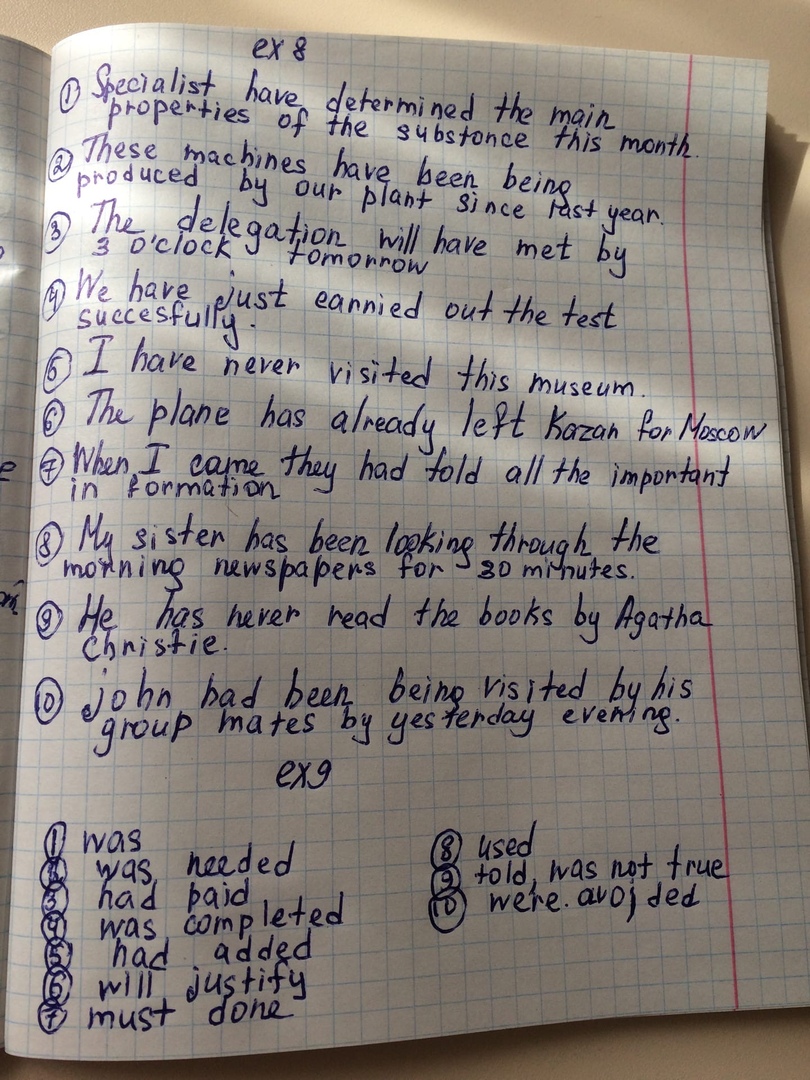 ex 8
① Specialist have determined the main
properties of the substonce this month.
② These machines have been being
produced by our plant since last year.
③ The delegation will have met by
3 o'clock tomorrow
④ We have just earnied out the test
succesfully.
⑤ I have never visited this museum.
⑥ The plane has already left Kazan for Moscow
⑦ When I came they had told all the important
in formation
⑧ My sister has been looking through the
morning newspapers for 30 minutes.
⑨ He has never read the books by Agatha
Christie.
⑩ john had been being visited by his
group mates by yesterday evening.
ex9
① was
② was needed
③ had paid
④ was completed
⑤ had added
⑥ will justify
⑦ must done
⑧ used
⑨ told, was not true
⑩ were. avoided